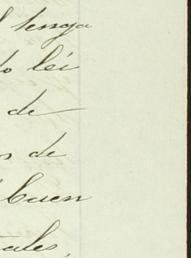 tenga
lei
de
de
buen
tales,